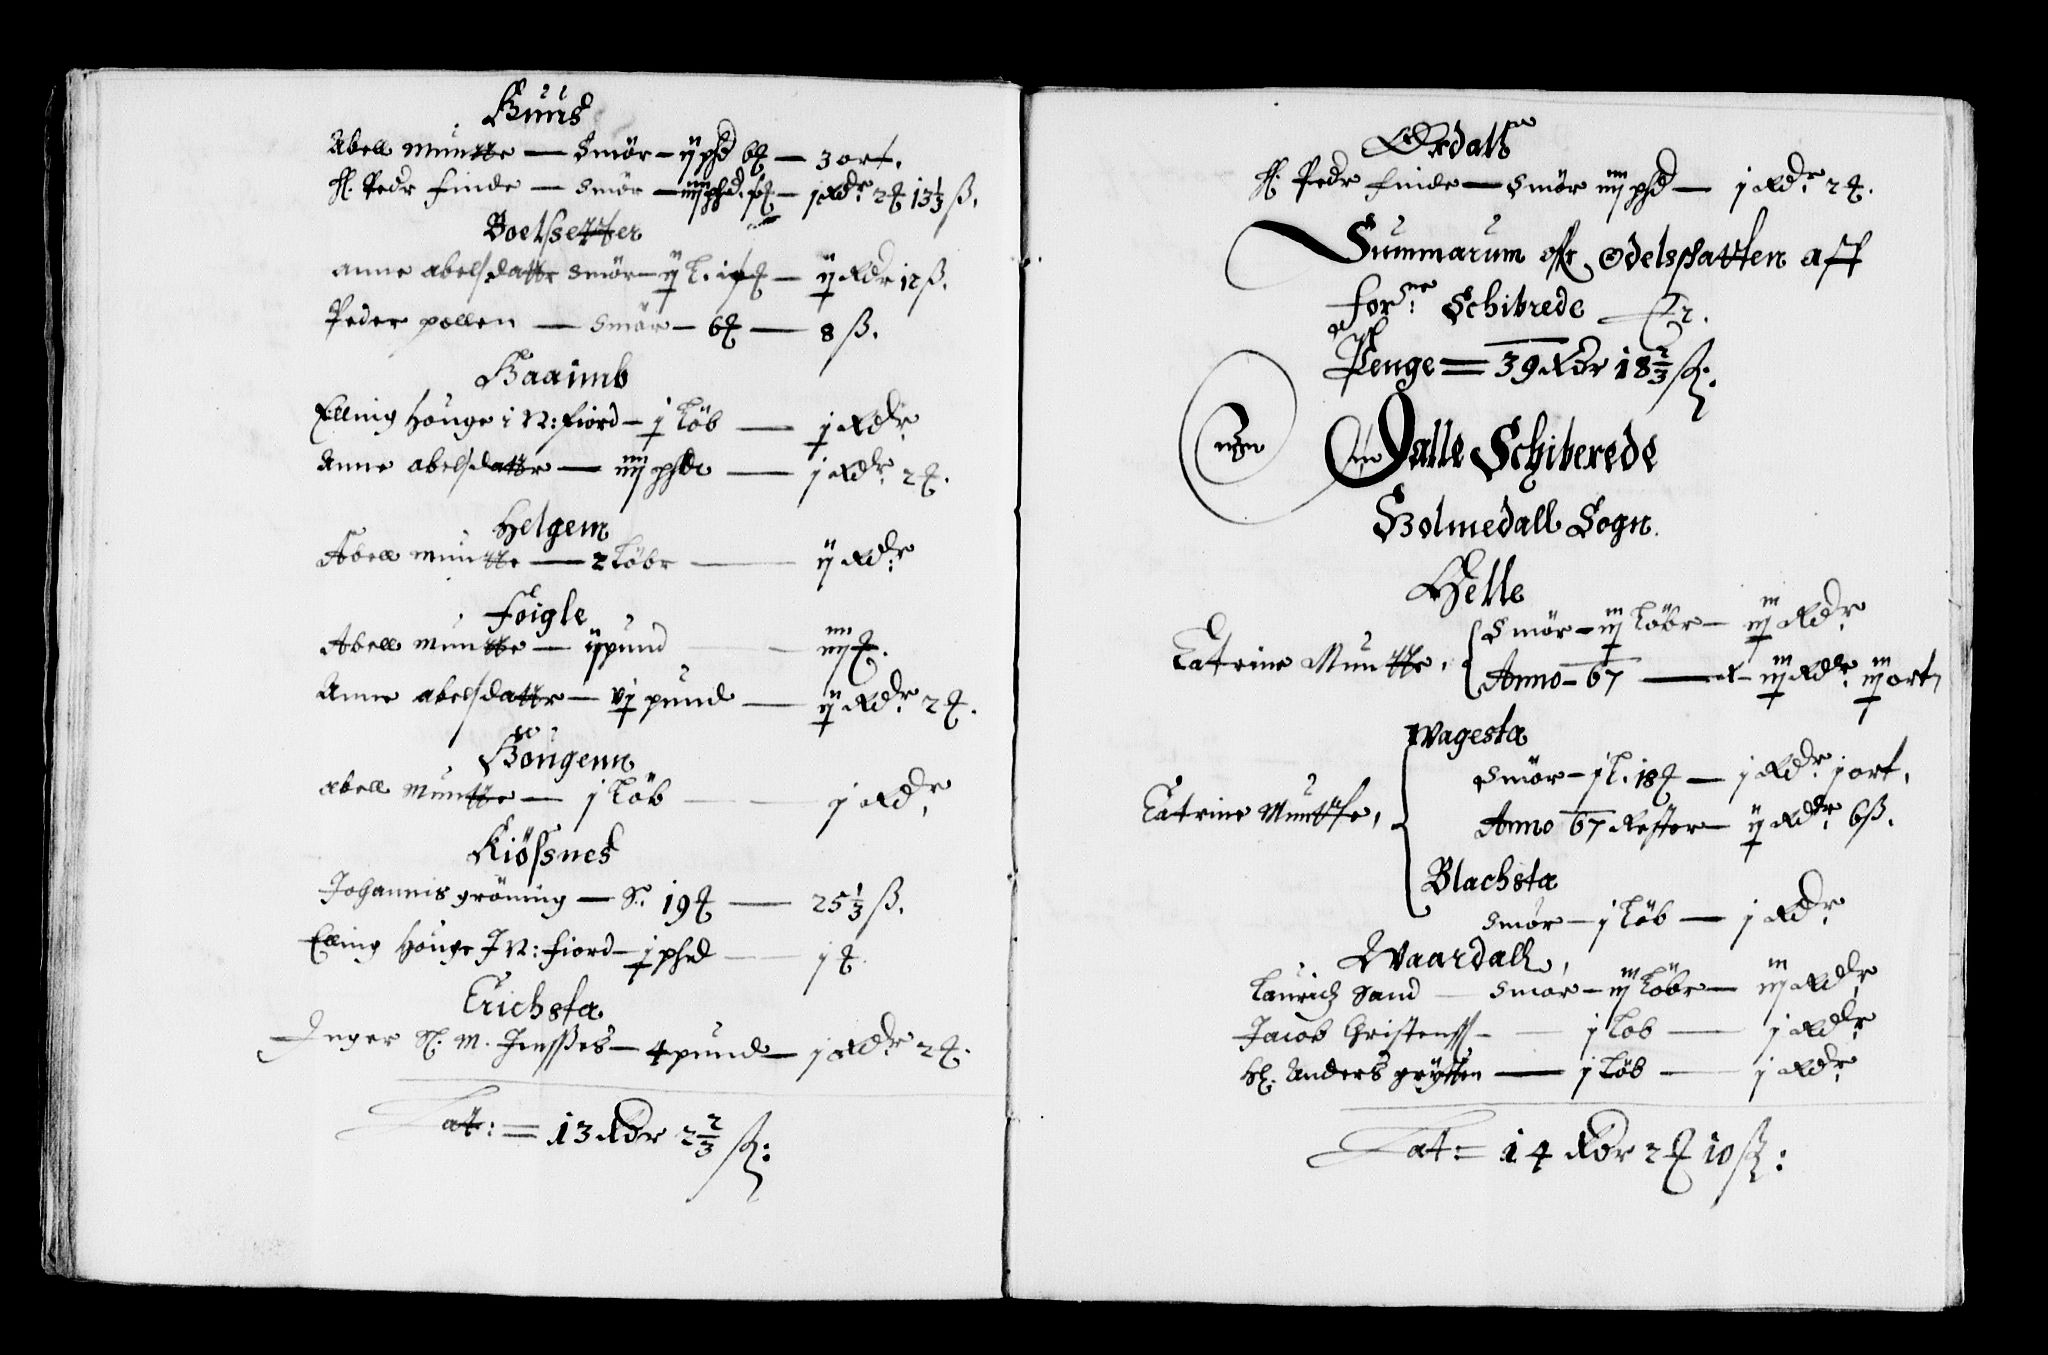 Huus
Abell Muntte — Smör — ij phd 6 ℔ — 3 ort.
H. Pedr finde — Smör — iiij phd. — j Rdr 2 ℔ 13 1/3 ß.
Boelsetter
Anne abelsdattr Smör — ij l. — ij Rdr 12 ß.
Peder pallen — Smör — 6 ℔ — 8 ß.
Haaimb
Elling Houge i N: fiord — j löb — j Rdr
Anne abelsdattr — iiij phdr — j Rdr 2 ℔.
Helgem
Abell Muntte — 2 löbr — ij Rdr
Foigle
Abell Muntte — ij pund — iiij ℔.
Anne abelsdattr — vj pund — ij Rdr 2 ℔.
Hougenn
Abell Muntte — j löb — j Rdr
Kiössnes
Johannis gröning — S. 19 ℔ — 25 1/3 ß.
Elling Houge J N: fiord — j phd — j ℔
Erichsta
Inger Sl. M. Jenssßes — 4 pund — j Rdr 2 ℔.
Lat: = 13 Rdr 2 2/3 ß:
Ordall
H. Pedr finde — Smör iiij phd — j Rdr 2 ℔.
Summarum offr Odelsskatten aff
forne Schibrede Er.
Penge = 39 Rdr 18 2/3 ß:
Dalle Schiberede
Holmedall Sogn.
Helle
Catrine Muntte, Smör — iij löbr — iij Rdr
Anno — 67 — iij Rdr iij ort
Wagesta
Smör — j l. 18 ℔ — j Rdr j ort.
Catrine Muntte, Anno 67 Rester — ij Rdr 6 ß.
Blachsta
Smör — j löb — j Rdr
Waardall,
Lauridz Sand — Smör — iij löbr — iij Rdr
Jacob Christenss — j löb — j Rdr
H. Anders grytten — j löb — j Rdr
Lat: = 14 Rdr 2 ℔ 10 ß: